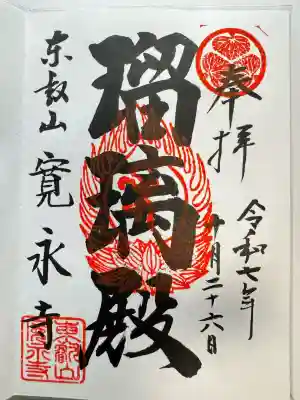 奉拝
令和七年
十月二十六日
瑠璃殿
東叡山 寛永寺
東叡山
寛永寺